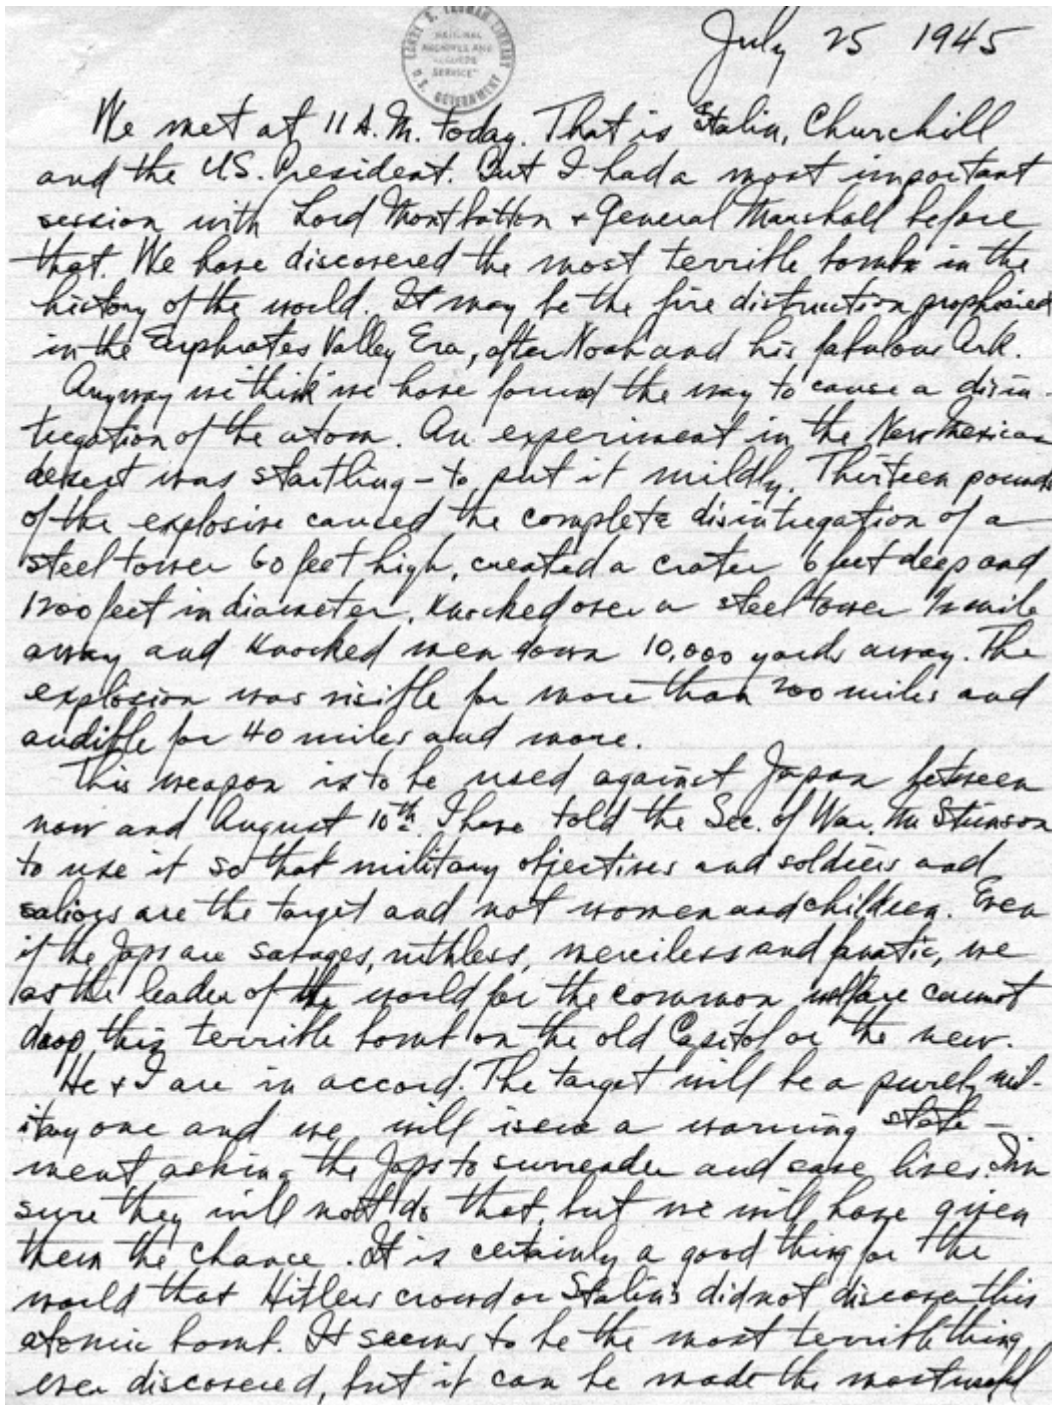 HARRY S. TRUMAN LIBRARY
NATIONAL
ARCHIVES AND
RECORDS
SERVICE
U.S. GOVERNMENT
July 25 1945
We met at 11 A.M. today. That is Stalin, Churchill
and the U.S. President. But I had a most important
session with Lord Montbatton & General Marshall before
that. We have discovered the most terrible bomb in the
history of the world. It may be the fire distruction prophesied
in the Euphrates Valley Era, after Noah and his fabulous Ark.
Anyway we think we have found the way to cause a disin-
tegration of the atom. An experiment in the New Mexican
desert was startling - to put it mildly. Thirteen pounds
of the explosive caused the complete disintegration of a
steel tower 60 feet high, created a crater 6 feet deep and
1200 feet in diameter, knocked over a steel tower 1/2 mile
away and knocked men down 10,000 yards away. The
explosion was visible for more than 200 miles and
audible for 40 miles and more.
This weapon is to be used against Japan between
now and August 10th. I have told the Sec. of War, Mr Stimson
to use it so that military objectives and soldiers and
saliors are the target and not women and children. Even
if the Japs are savages, ruthless, merciless and fanatic, we
as the leader of the world for the common welfare cannot
drop this terrible bomb on the old Capitol or the new.
He & I are in accord. The target will be a purely mil-
itary one and we will issue a warning state-
ment asking the Japs to surrender and save lives. I'm
sure they will not do that, but we will have given
them the chance. It is certainly a good thing for the
world that Hitlers crowd or Stalin's did not discover this
atomic bomb. It seems to be the most terrible thing
ever discovered, but it can be made the most useful